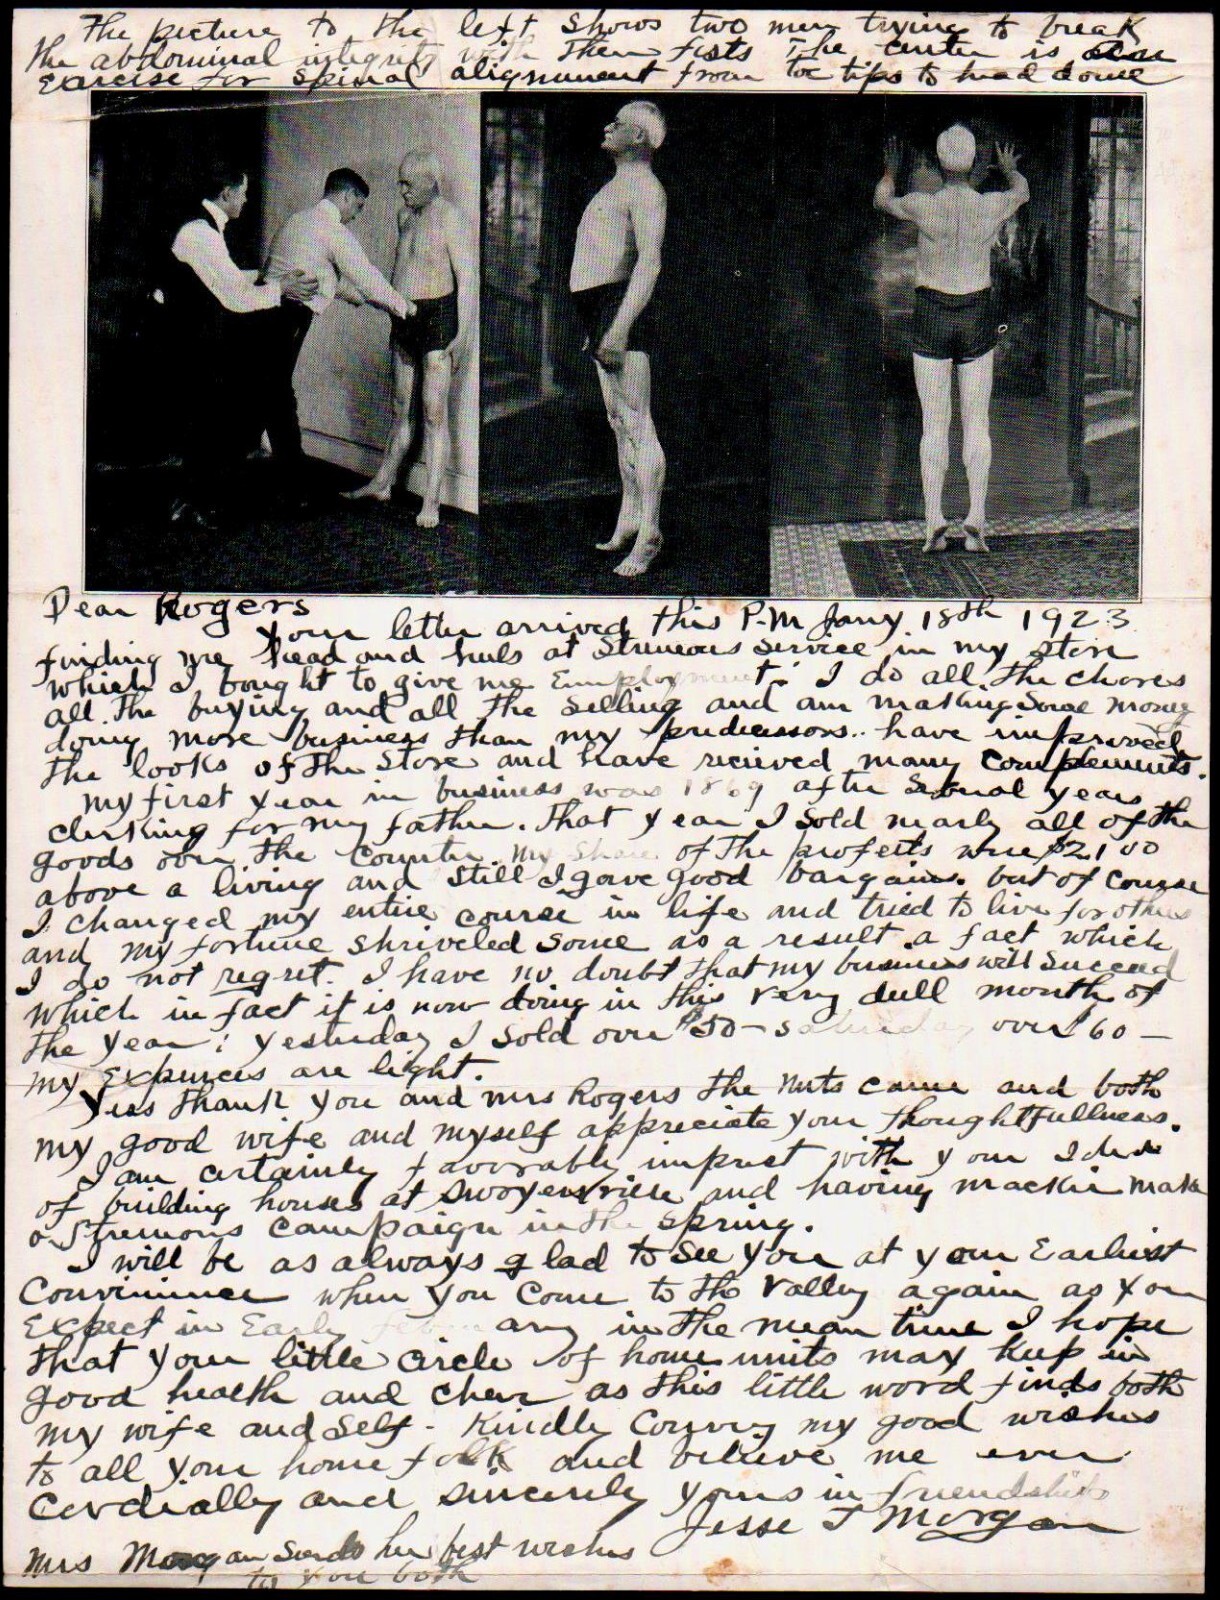 The picture to the left shows two men trying to break
the abdominal integrity with their fists The center is
Exercise for spinal alignment from toe tips to head dome
Dear Rogers
Your letter arrived this P-M Jany 18th 1923
finding me head and heels at Streneous Service in my store
which I bought to give me Employment: I do all the chores
all the buying and all the selling and am making some money
doing more business than my predecessors.. have improved
the looks of the Store and have recieved many complements.
My first year in business was 1869 after several years
clerking for my father. That year I sold nearly all of the
goods over the counter. My share of the profits were $2100
above a living and still I gave good bargains. but of course
I changed my entire course in life and tried to live for others
and my fortune shriveled some as a result a fact which
I do not regret. I have no doubt that my business will succeed
which in fact it is now doing in this very dull month of
the year; yesterday I sold over $50- Saturday over $60-
my expences are light.
Yess thank you and Mrs Rogers the nuts came and both
my good wife and myself appreciate your thoughtfullness.
I am certainly favorably imprest with your Idea
of building houses at Swoyersville and having mackie make
a Strenuous campaign in the spring.
I will be as always glad to see you at your Earliest
Convinience when you come to the Valley again as you
Expect in Early February in the mean time I hope
that your little circle of home units may keep in
good health and cheer as this little word finds both
my wife and self - Kindly Convey my good wishes
to all your home folk and believe me ever
Cordially and sincerely yours in friendship
Jesse T Morgan
Mrs Morgan sends her best wishes
to you both